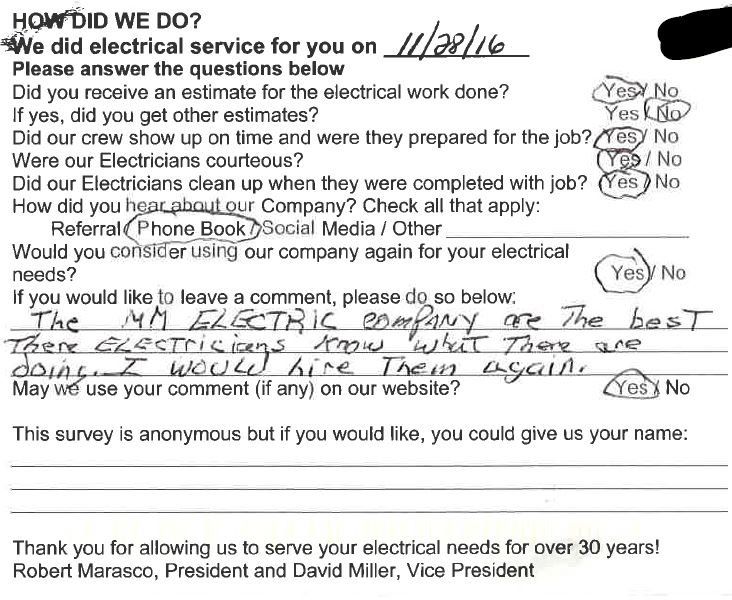 HOW DID WE DO?
We did electrical service for you on 11/28/16
Please answer the questions below
Did you receive an estimate for the electrical work done? Yes / No
If yes, did you get other estimates? Yes / No
Did our crew show up on time and were they prepared for the job? Yes / No
Were our Electricians courteous? Yes / No
Did our Electricians clean up when they were completed with job? Yes / No
How did you hear about our Company? Check all that apply:
Referral / Phone Book / Social Media / Other
Would you consider using our company again for your electrical
needs? Yes / No
If you would like to leave a comment, please do so below:
The MM ELECTRIC company are The best
There ELECTricians know what There are
doing. I would hire Them again.
May we use your comment (if any) on our website? Yes / No
This survey is anonymous but if you would like, you could give us your name:
Thank you for allowing us to serve your electrical needs for over 30 years!
Robert Marasco, President and David Miller, Vice President